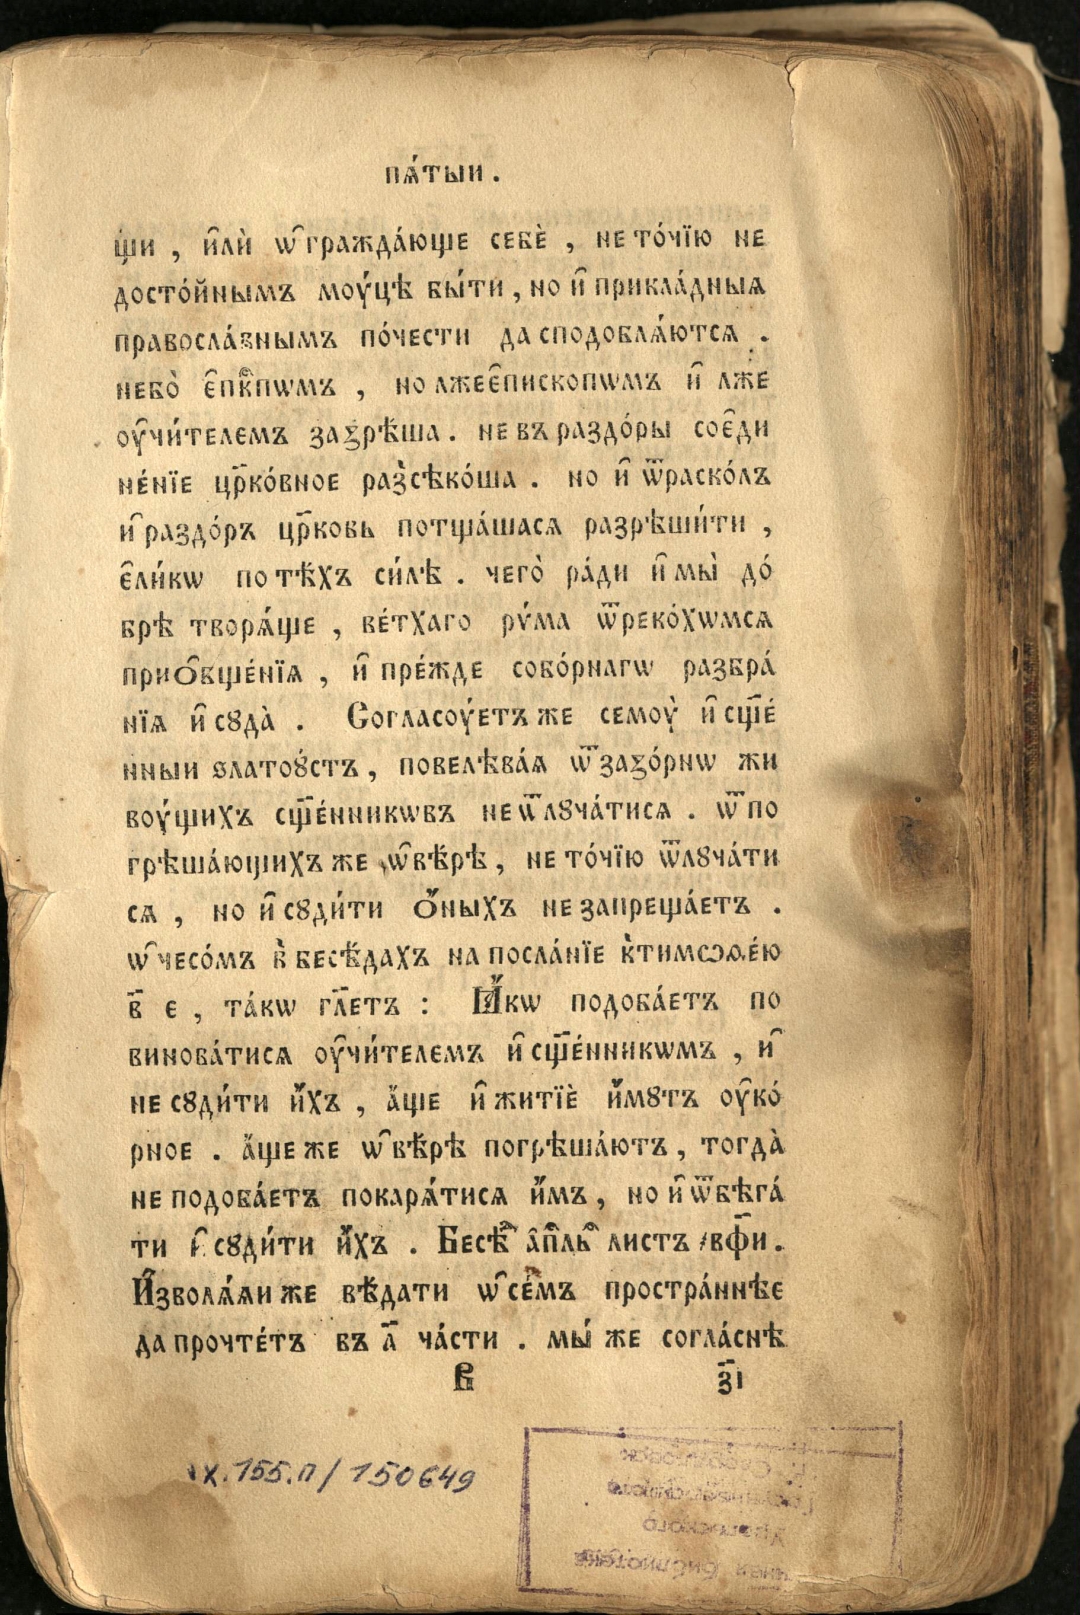 пѧ́тыи .
щи , и҆лѝ ѡ҆гражда́юще себѐ , не то́чїю не
досто́йнымъ моу́цѣ бы́ти , но и҆ прикла́дныѧ
правосла́внымъ по́чести да сподоблѧ́ютсѧ .
небо̀ є҆пⷭ҇кпѡмъ , но лжеє҆пископѡмъ и҆ лже
оу҆чи́телемъ заꙁрѣша . не въ раздо́ры соє҆ди
не́нїе цр҃ко́вное раз̾сѣко́ша . но и҆ ѿраско́лъ
и҆ раздо́ръ цр҃ковь потща́шасѧ разрѣши́ти ,
є҆ли́кѡ по тѣ́хъ си́лѣ . чего̀ ра́ди и҆ мы̀ до́
брѣ творѧ́ще , ве́тхаго рѵ́ма ѿреко́хѡмсѧ
приѻ҆бще́нїѧ , и҆ пре́жде собо́рнагѡ разбра́
нїѧ и҆ сꙋда̀ . Согласоу́етъ же семоу̀ и҆ сщ҃е́
нныи златоꙋ́стъ , повелѣва́ѧ ѿ заꙁо́рнѡ жи
воу́щихъ сщ҃е́нникѡвъ не ѿлꙋча́тисѧ . ѿ по
грѣша́ющихъ же ѡ҆ вѣ́рѣ , не то́чїю ѿлꙋча́ти
сѧ , но и҆ сꙋди́ти ѻ҆́ныхъ не запреща́етъ .
ѡ҆ чесо́мъ в̾ бесѣ́дахъ на посла́нїе к̾ тимѡѳе́ю
в҃ є , та́кѡ гл҃етъ : Ꙗ҆́кѡ подоба́етъ по
винова́тисѧ оу҆чи́телемъ и҆ сщ҃е́нникѡмъ , и҆
не сꙋди́ти и҆́хъ , а҆́ще и҆ житїѐ и҆́мꙋтъ оу҆ко́
рное . а҆́ще же ѡ҆ вѣ́рѣ погрѣша́ютъ , тогда̀
не подоба́етъ покарѧ́тисѧ и҆́мъ , но и҆ ѿбѣга́
ти и҆ сꙋди́ти и҆́хъ . Бесѣⷣ а҆пⷭ҇льⷭ листъ ҂вф҃и .
И҆зволѧ́ѧи же вѣ́дати ѡ҆ се́мъ простра́ннѣе
да прочте́тъ въ а҃ ча́сти . мы́ же согла́снѣ
в҃ з҃і
ıх.155.п / 150649